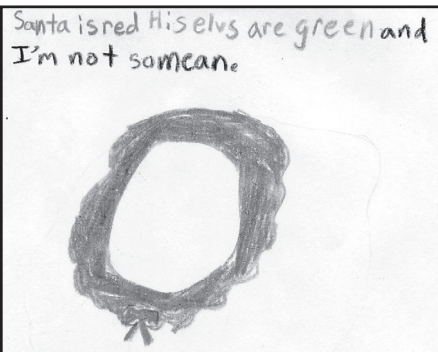 Santa is red His elvs are green and
I'm not so mean.